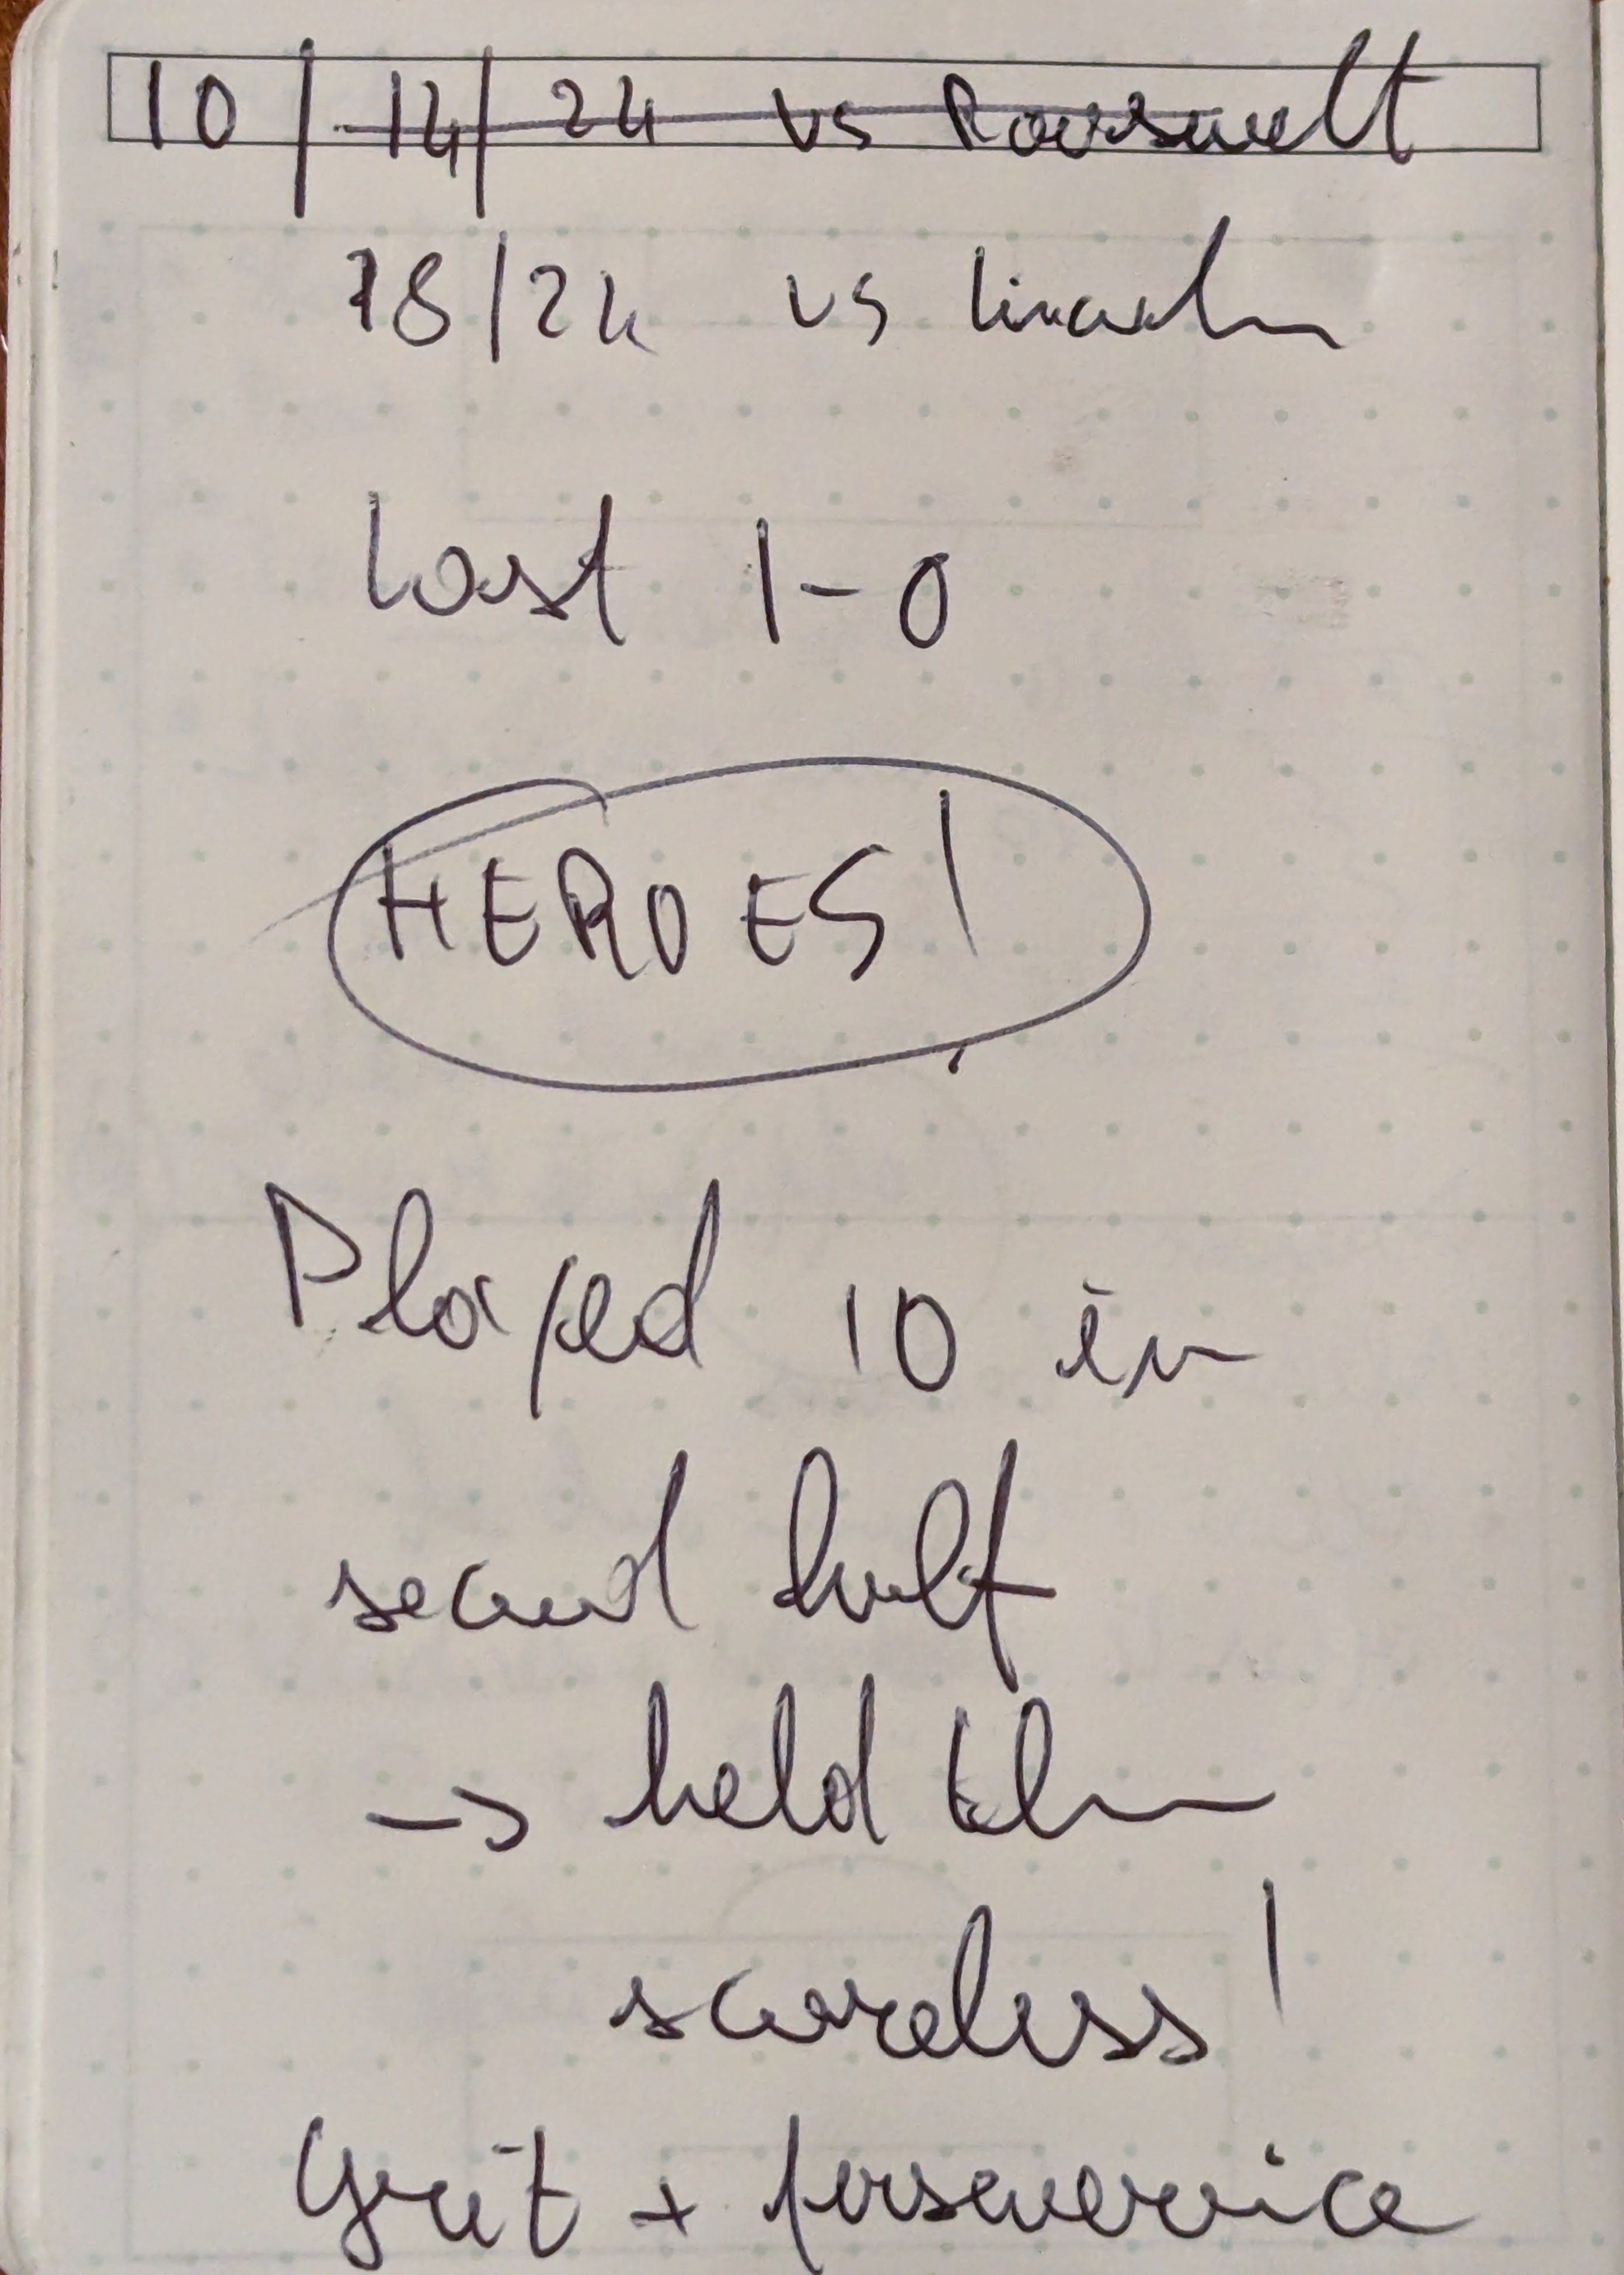 10/14/24 vs Roosevelt
18/24 vs Lincoln
Lost 1-0
HEROES!
Played 10 in
second half
-> held them
scoreless!
Grit + perseverance